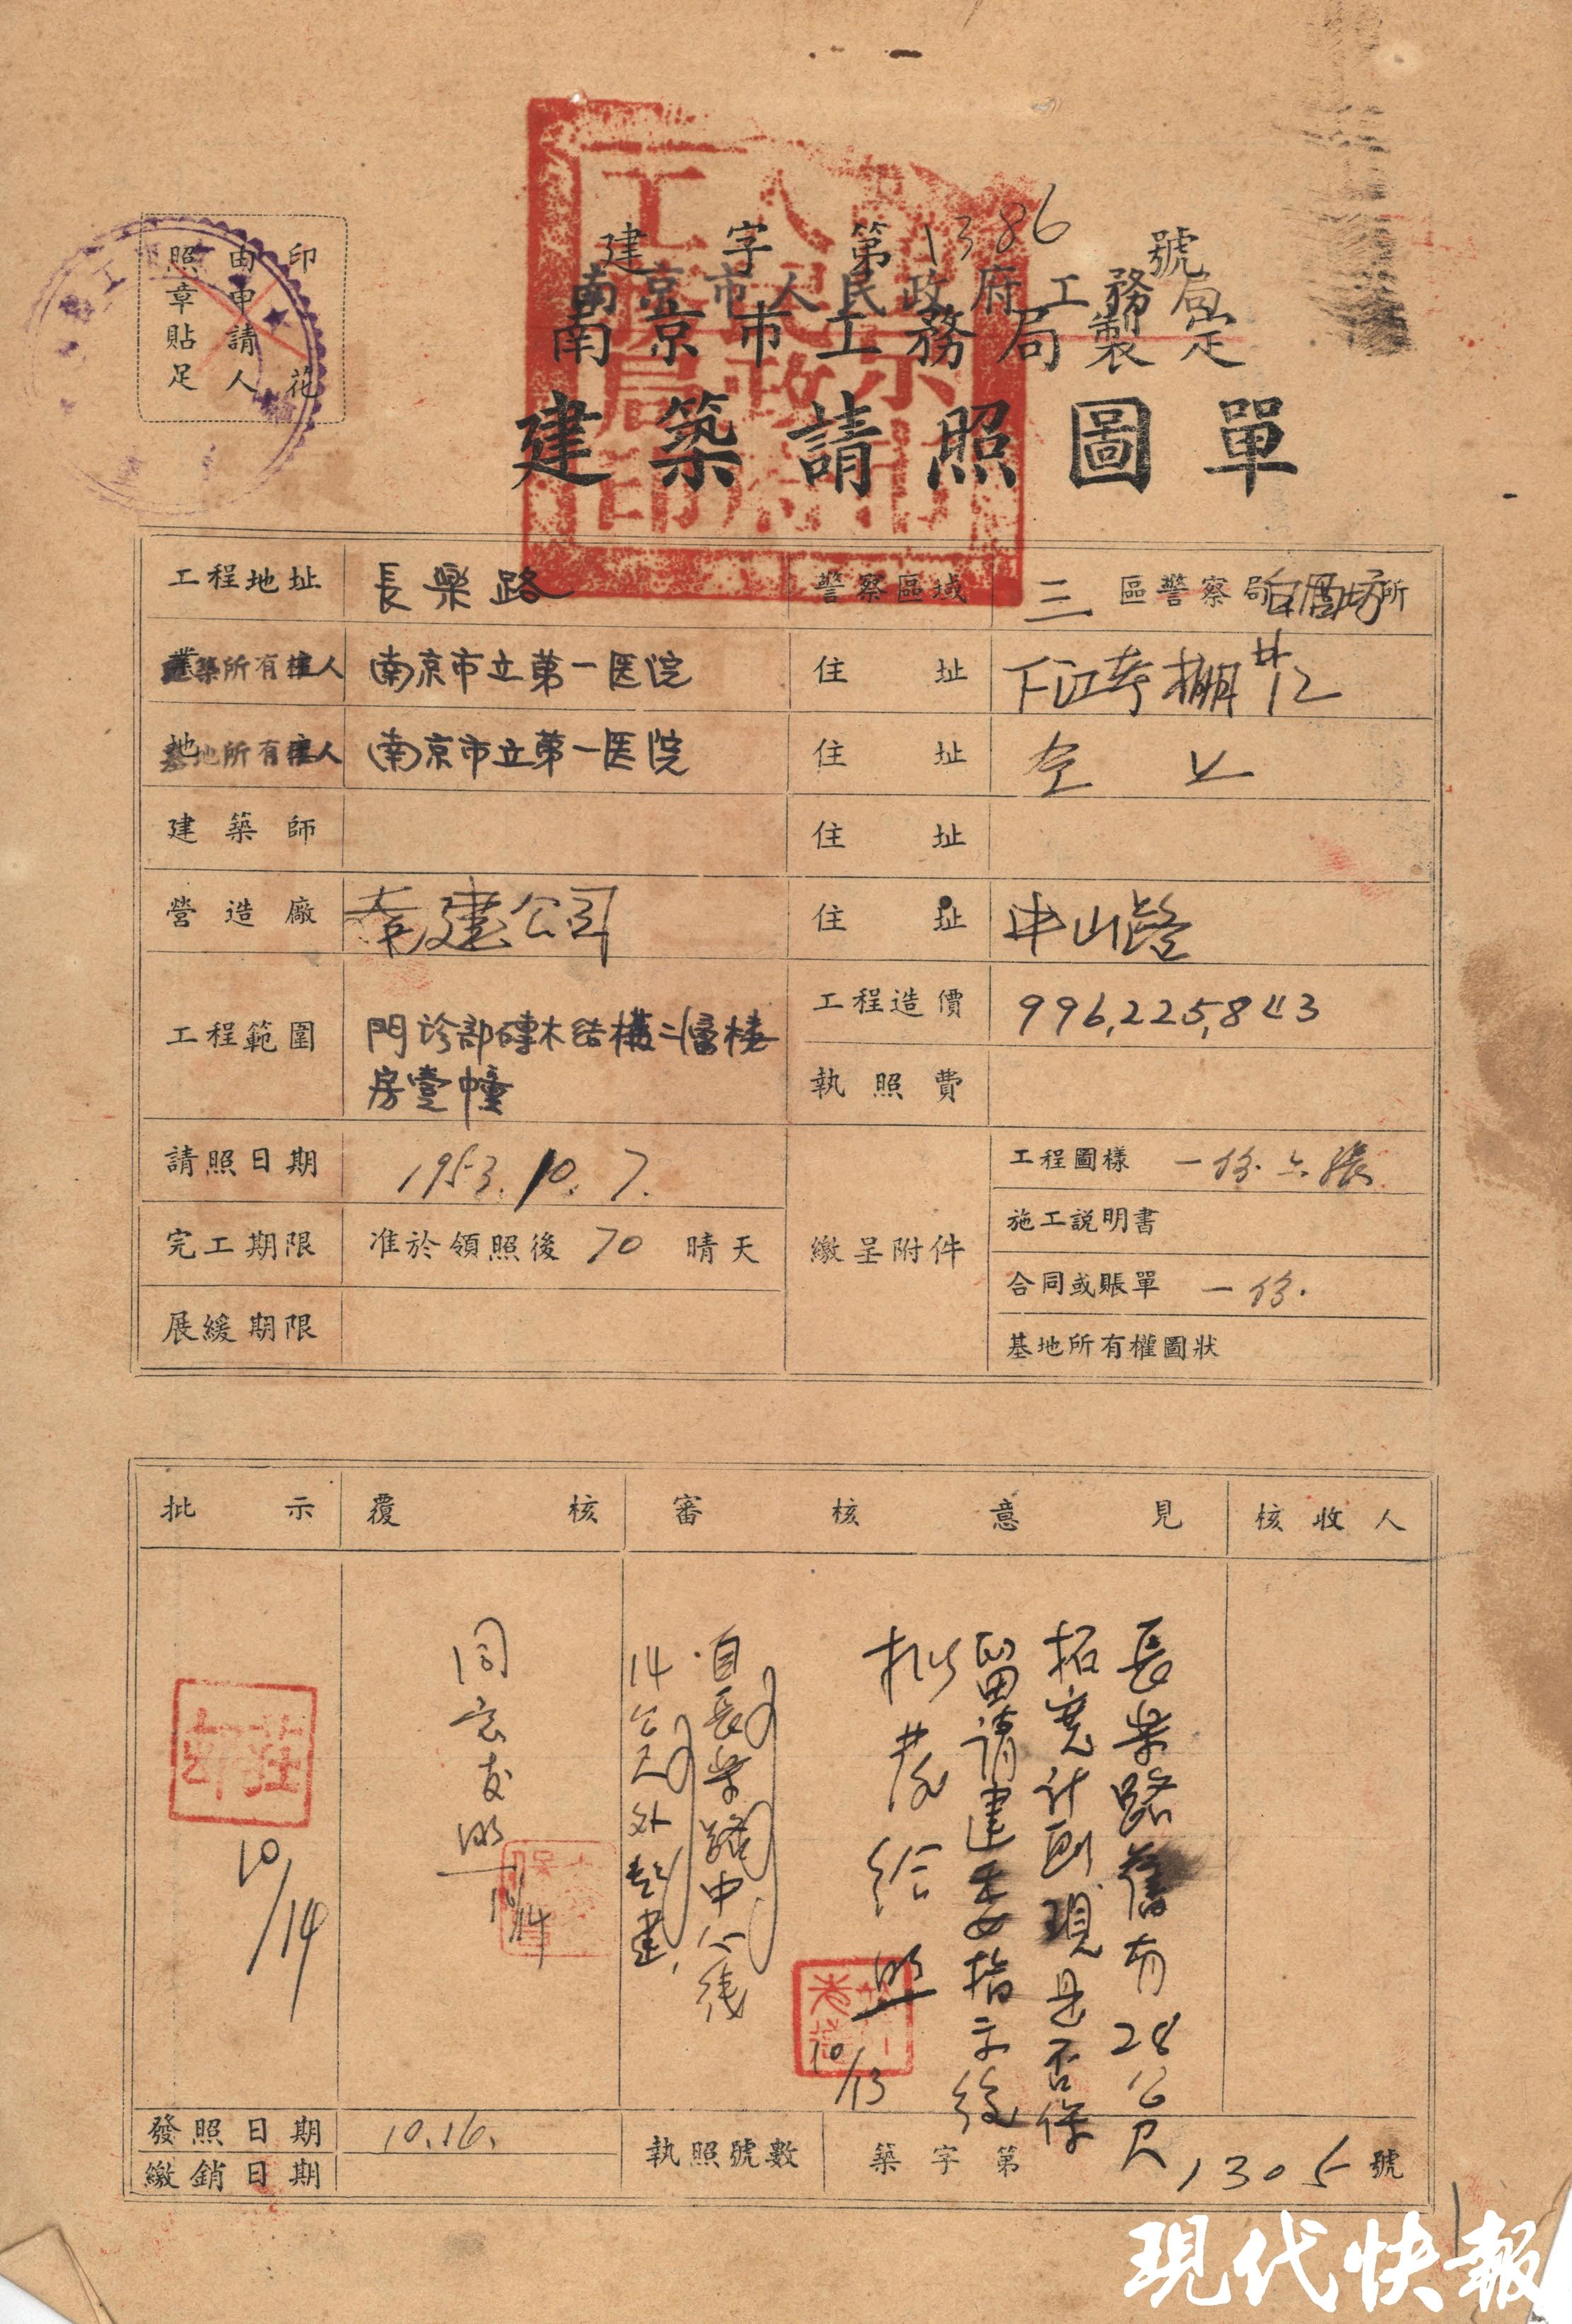 建字第1386號
南京市人民政府工務局
南京市工務局製定
建築請照圖單
印花
由申請人
照章貼足
工程地址 長樂路 警察區域 三 區警察局白酒坊所
業築所有權人 南京市立第一医院 住址 下江考棚#12
地地所有權人 南京市立第一医院 住址 仝上
建築師 住址
營造廠 南建公司 住址 中山路
工程範圍 門诊部磚木结構二層楼
房壹幢
工程造價 996,225,843
執照費
請照日期 1953.10.7.
完工期限 准於領照後 70 晴天
展緩期限
繳呈附件
工程圖樣 一份.六張
施工說明書
合同或賬單 一份.
基地所有權圖狀
批示 覆核 審核意見 核收人
長樂路舊有28公尺
拓寬计劃現是否保
留请建委指示後
批發给照
10/13
自長樂路中心线
14公尺外起建
同意发照
10/14
10/14
發照日期 10.16.
繳銷日期
執照號數 築字第1305號
現代快報